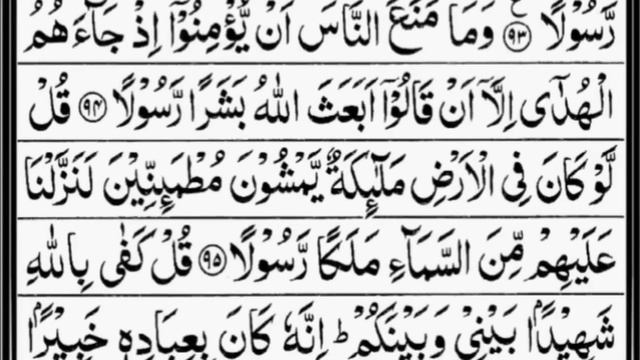 رَّسُوْلًا ۧ﴿۹۳﴾ وَمَا مَنَعَ النَّاسَ اَنْ يُّؤْمِنُوْۤا اِذْ جَآءَهُمُ
الْهُدٰۤى اِلَّاۤ اَنْ قَالُوْۤا اَبَعَثَ اللّٰهُ بَشَرًا رَّسُوْلًا ﴿۹۴﴾ قُلْ
لَّوْ كَانَ فِى الْاَرْضِ مَلٰٓئِكَةٌ يَّمْشُوْنَ مُطْمَئِنِّيْنَ لَنَزَّلْنَا
عَلَيْهِمْ مِّنَ السَّمَآءِ مَلَكًا رَّسُوْلًا ﴿۹۵﴾ قُلْ كَفٰى بِاللّٰهِ
شَهِيْدًۢا بَيْنِىْ وَبَيْنَكُمْ ؕ اِنَّهٗ كَانَ بِعِبَادِهٖ خَبِيْرًۢا